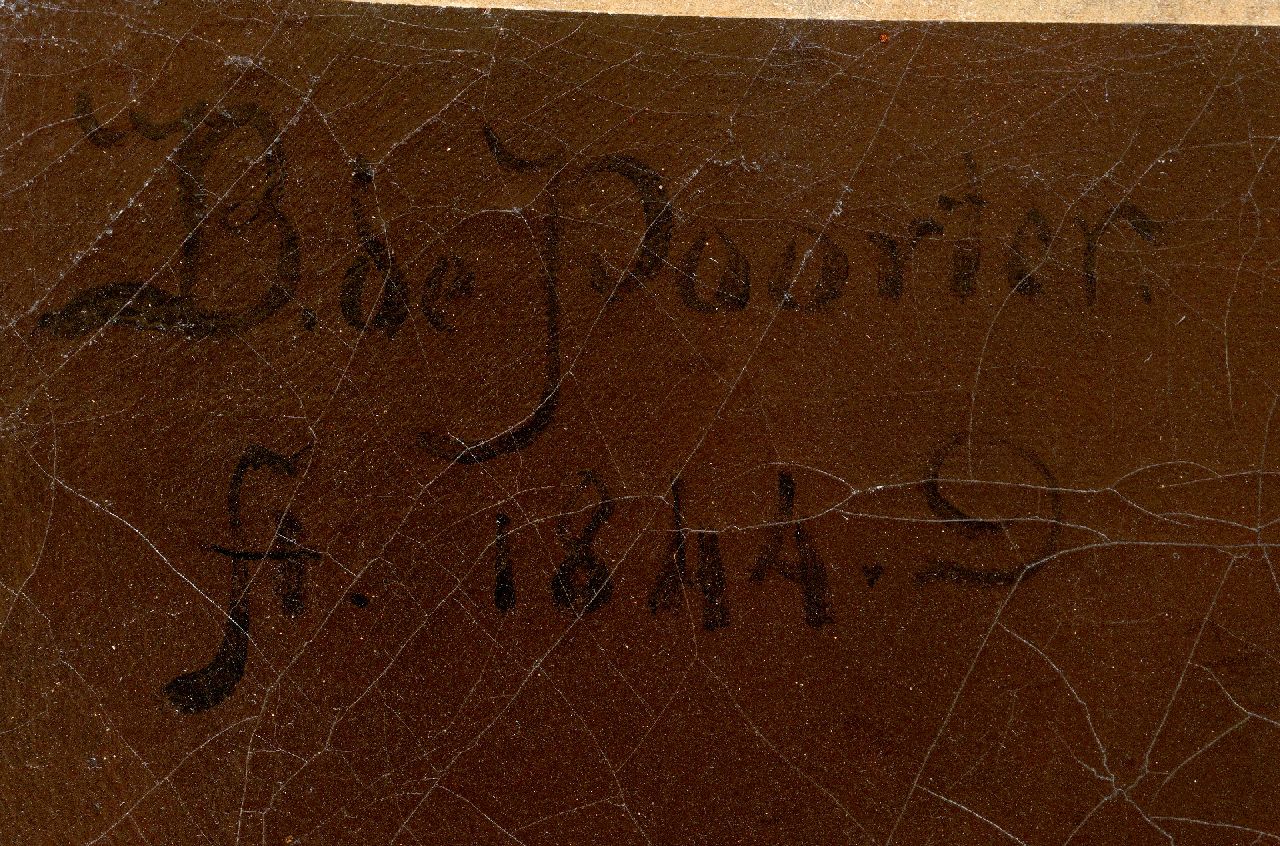 B. de Poorter.
ft. 1844.